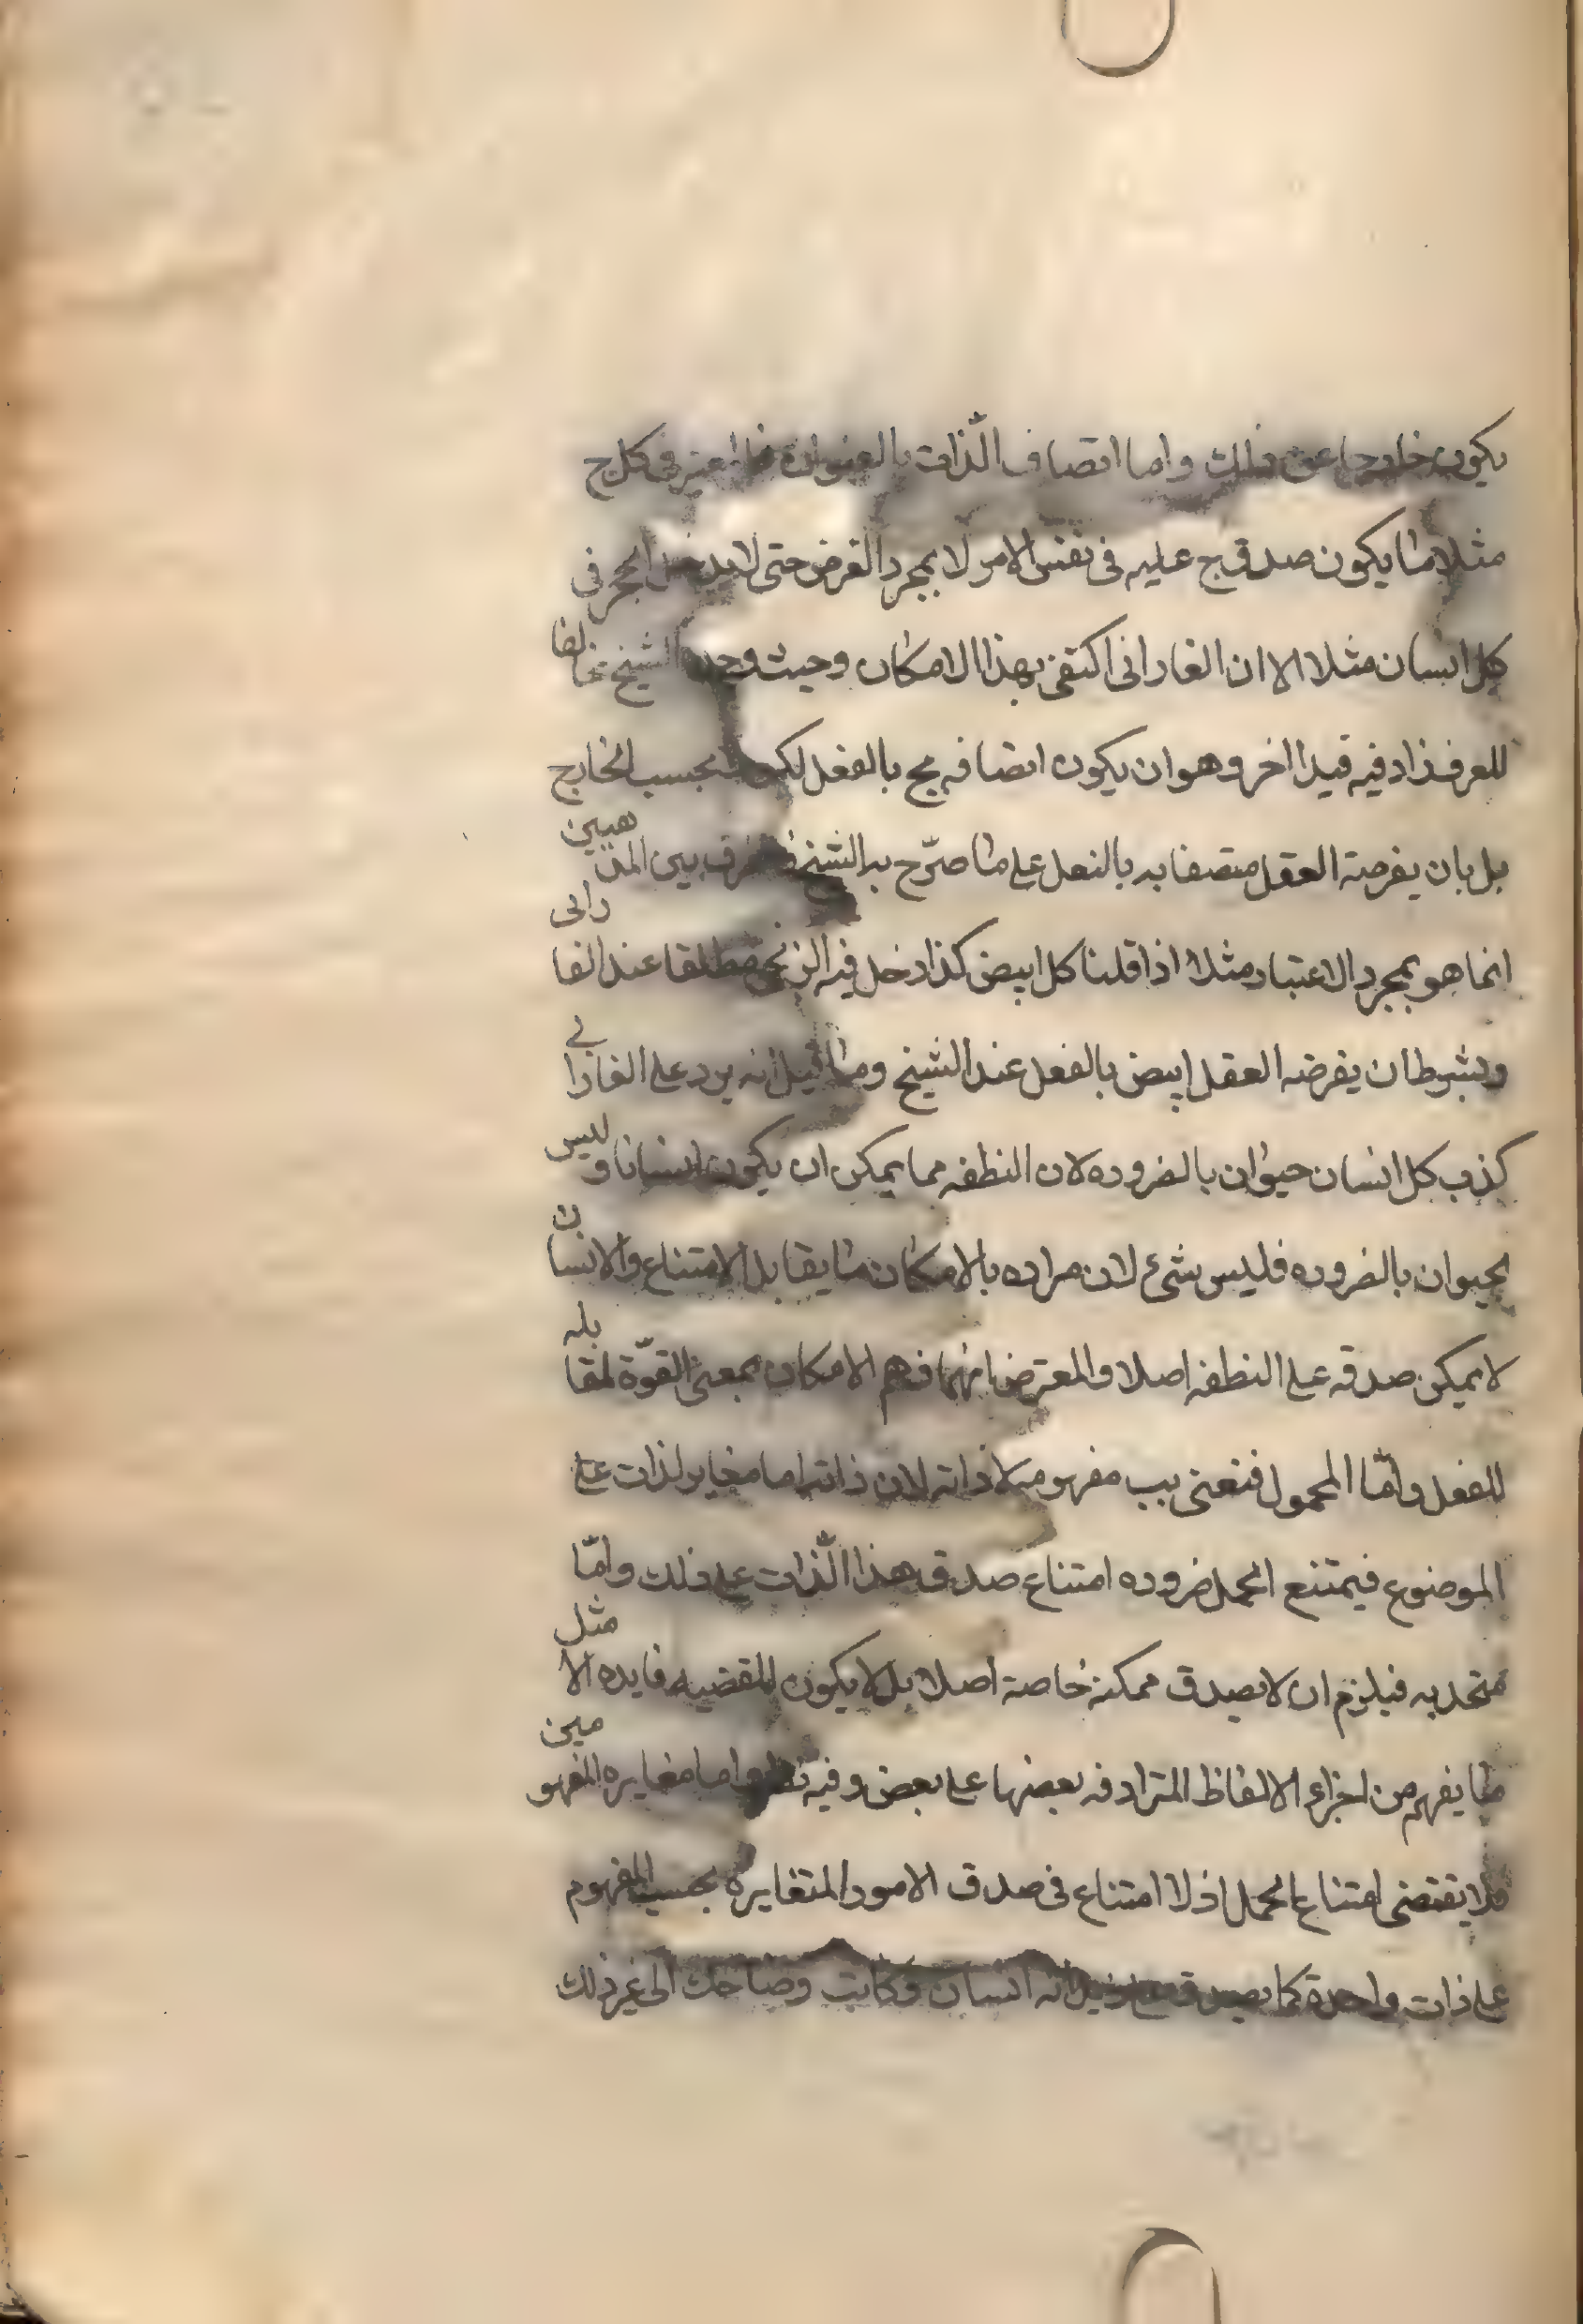 يكون خارجا عن ذلك واما اتصاف الذات بالعنوان فما اعتبر فى كل ج
مثلا ما يكون صدق ج عليه فى نفس الامر لا بمجرد الفرض حتى لا يدخل الحجر فى
كل انسان مثلا الا ان الفارانى اكتفى بهذا الامكان وحيث وجده الشيخ مخالفا
للعرف زاد فيه قيدا اخر وهو ان يكون اتصافه بج بالفعل لكن بحسب الخارج
بل بان يفرضه العقل متصفا به بالفعل على ما صرّح به الشيخ فالفرق بين المذهبين
انما هو بمجرد الاعتبار مثلا اذا قلنا كل ابيض كذا دخل فيه الزنجى مطلقا عند الفارابى
وبشرط ان يفرضه العقل ابيض بالفعل عند الشيخ وما قيل انه يرد على الفارابى
كذب كل انسان حيوان بالضروره لان النطفه مما يمكن ان يكون انسانا وليس
بحيوان بالضروره فليس بشئ لان مراده بالامكان ما يقابل الامتناع والانسان
لا يمكن صدقه على النطفه اصلا والمعترض انما فهم الامكان بمعنى القوّة لمقابله
للفعل وامّا المحمول فنعنى بب مفهومه لا ذاته لان ذاته اما مغاير لذات على
الموضوع فيمتنع الحمل ضروره امتناع صدق هذا الّذات على ذلك وامّا
متحد به فيلزم ان لا يصدق ممكنه خاصة اصلا بل لا يكون للقضيه فايده الا مثل
ما يفهم من اجزاء الالفاظ المترادفه بعضها على بعض وفيه نظر واما مغايره المفهومين
فلا يقتضى امتناع الحمل اذ لا امتناع فى صدق الامور المتغايره بحسب المفهوم
على ذات واحدة كما يصدق على زيد انه انسان وكاتب وضاحك الى غير ذلك